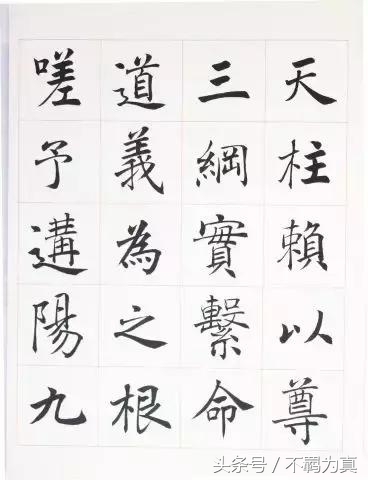 天柱賴以尊
三綱實繫命
道義為之根
嗟予遘陽九
头条号/不羁为真